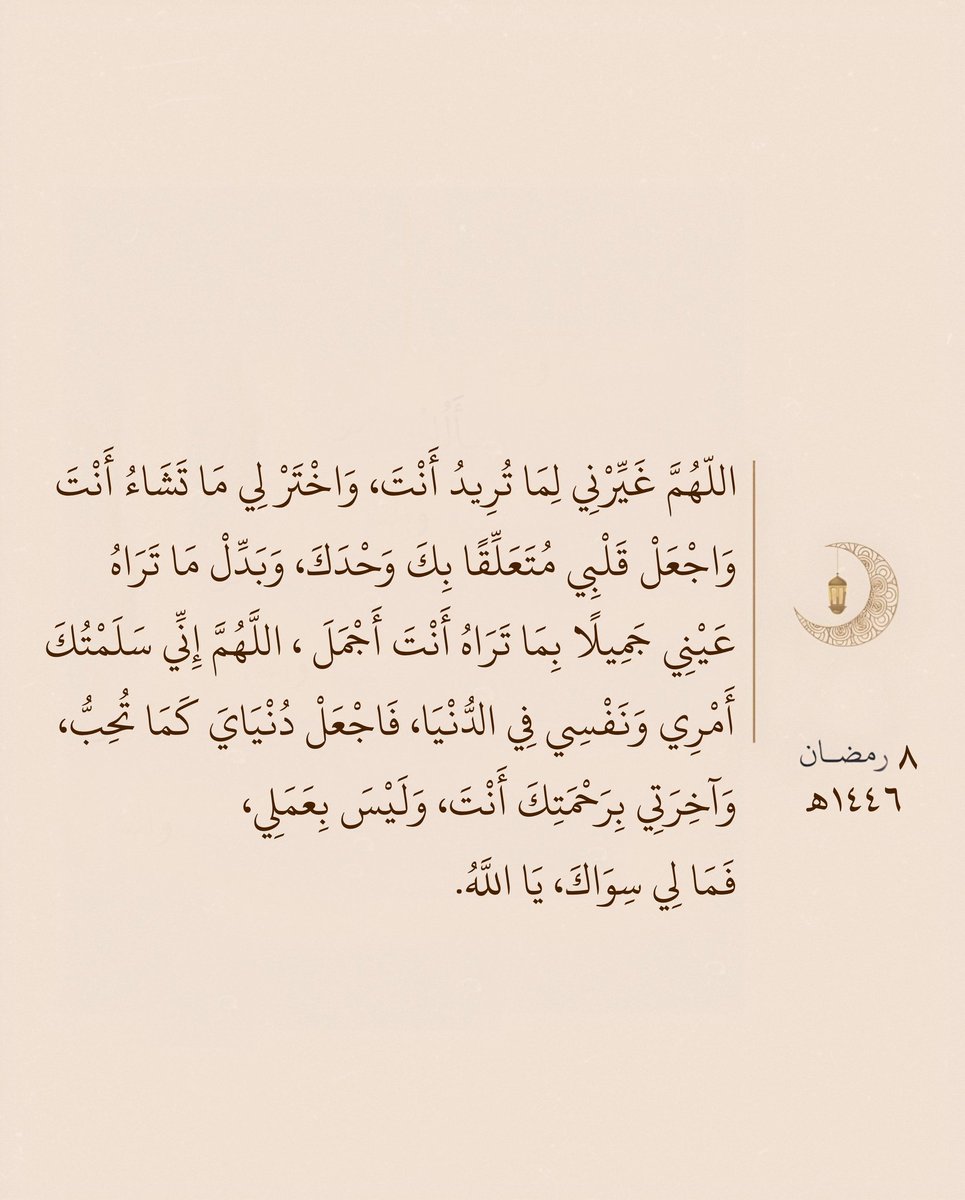 اللّهُمَّ غَيِّرْنِي لِمَا تُرِيدُ أَنْتَ، وَاخْتَرْ لِي مَا تَشَاءُ أَنْتَ
وَاجْعَلْ قَلْبِي مُتَعَلِّقًا بِكَ وَحْدَكَ، وَبَدِّلْ مَا تَرَاهُ
عَيْنِي جَمِيلًا بِمَا تَرَاهُ أَنْتَ أَجْمَلَ ، اللَّهُمَّ إِنِّي سَلَمْتُكَ
أَمْرِي وَنَفْسِي فِي الدُّنْيَا، فَاجْعَلْ دُنْيَايَ كَمَا تُحِبُّ،
وَآخِرَتِي بِرَحْمَتِكَ أَنْتَ، وَلَيْسَ بِعَمَلِي،
فَمَا لِي سِوَاكَ، يَا اللَّهُ.
٨ رمضـان
١٤٤٦هـ